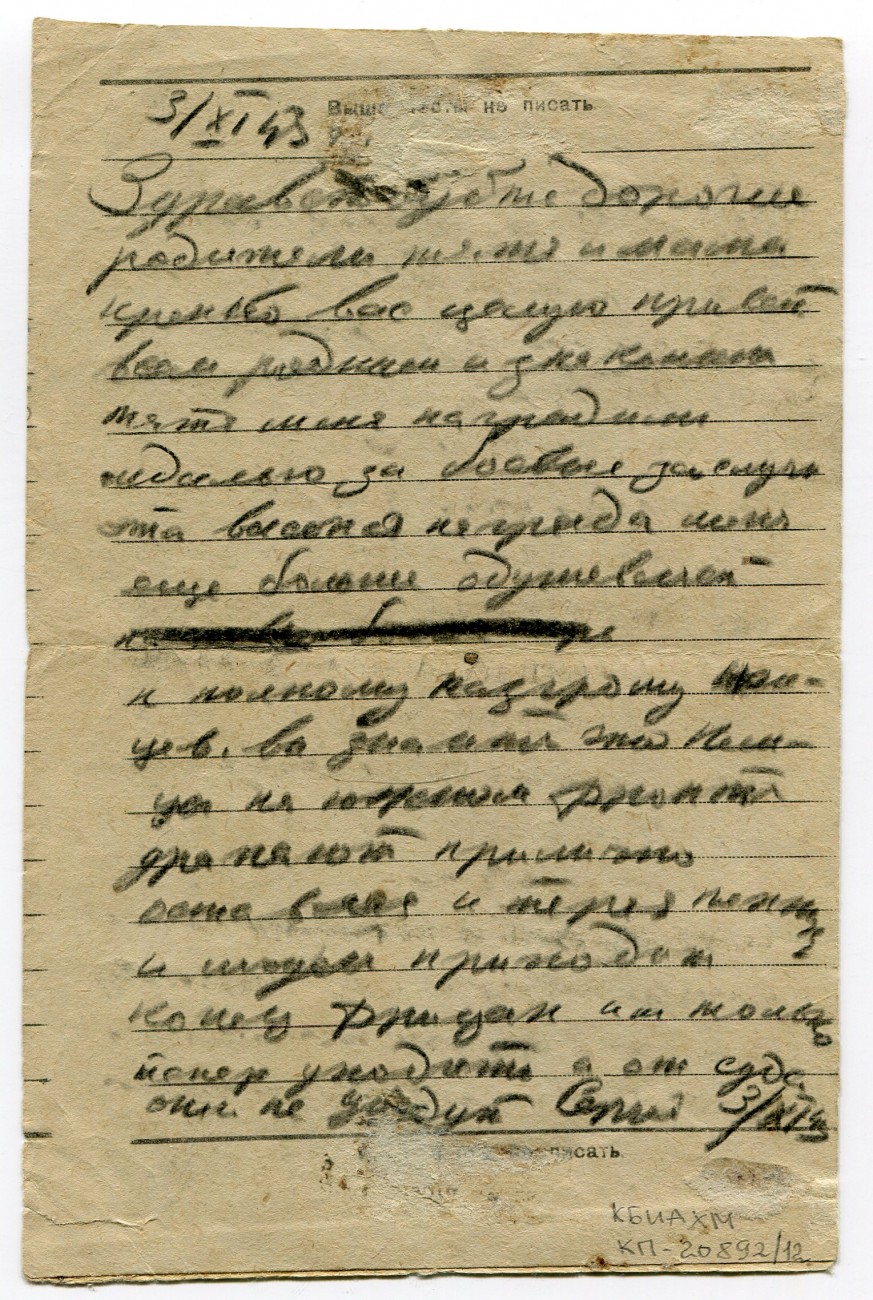 Выше черты не писать
3/XI 43
Здравствуйте дорогие
родители тятя и мама
крепко вас целую привет
всем родным и знакомым
тятя меня наградили
медалью за боевые заслуги
эта высокая награда меня
еще больше одушевляет
к полному разгрому нем-
цев. вы знаити што нем-
цы на южном фронти
драпают прилично
оставляя и теряя
и приходит
конец фрицам им только
тепер уходить а от суда
они не уйдут Сергей 3/XI 43
писать
КБИАХМ
КП-20892/12